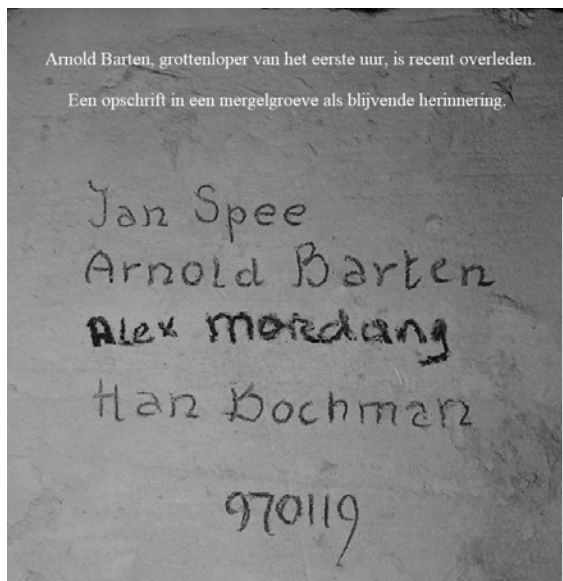 Arnold Barten, grottenloper van het eerste uur, is recent overleden.
Een opschrift in een mergelgroeve als blijvende herinnering.
Jan Spee
Arnold Barten
Alex Mordang
Han Bochman
970119